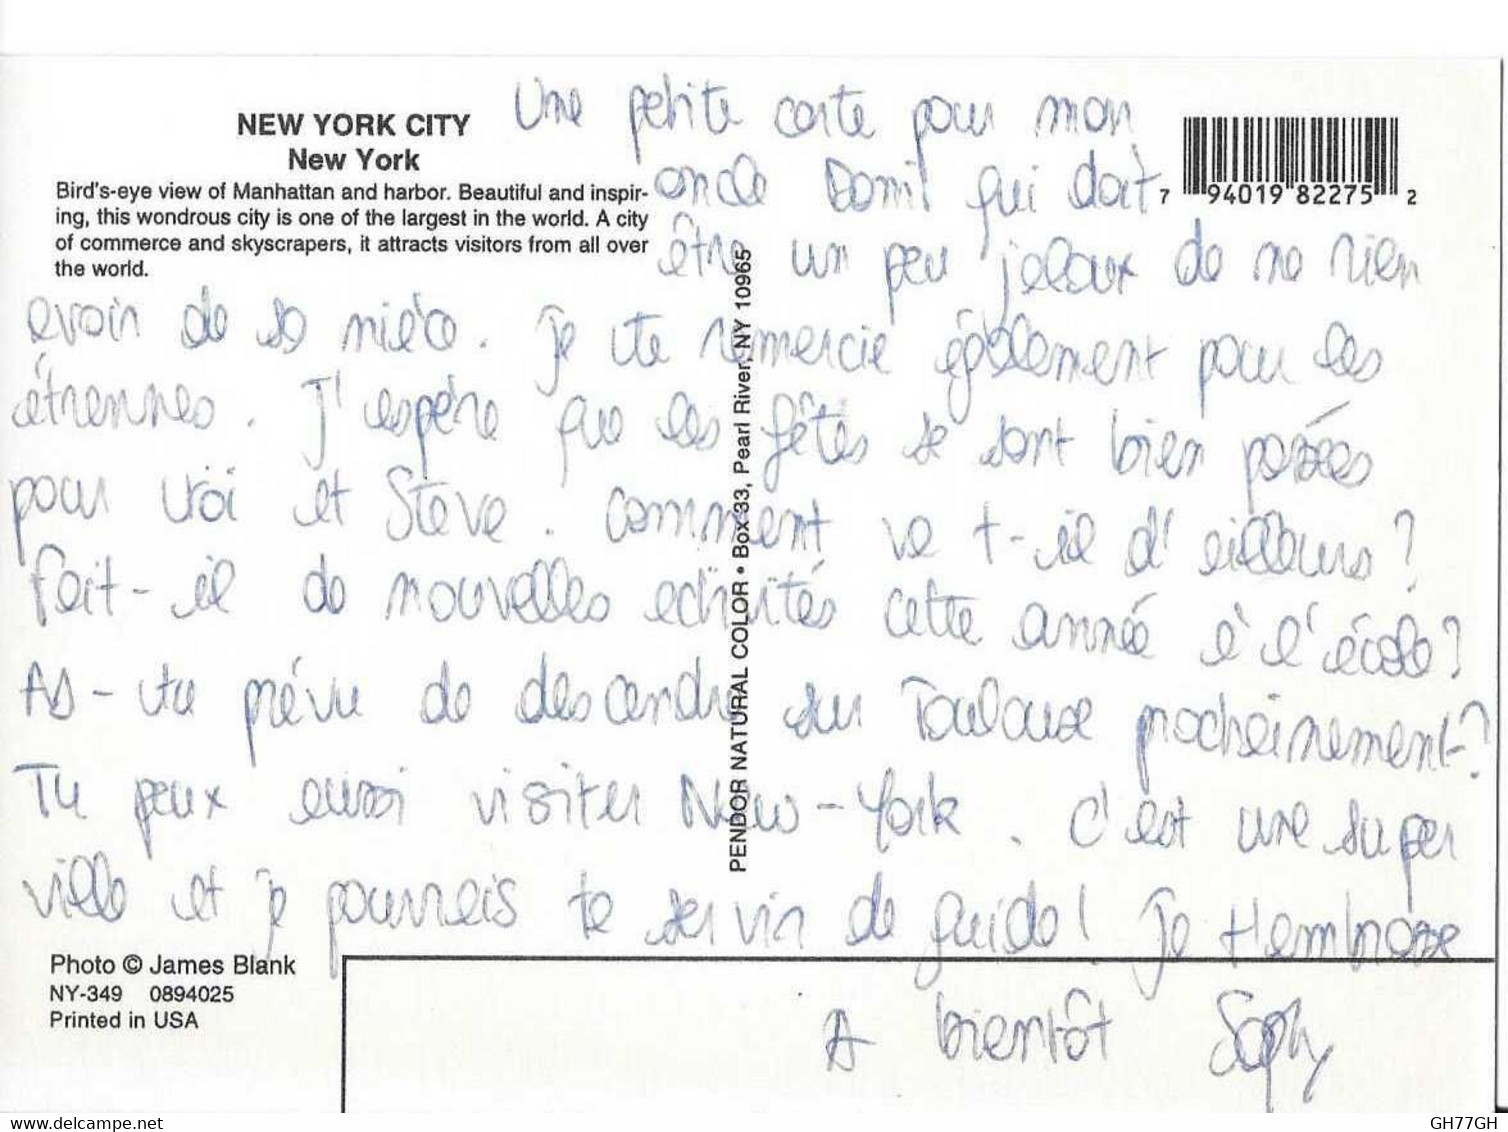 NEW YORK CITY
New York
Bird's-eye view of Manhattan and harbor. Beautiful and inspir-
ing, this wondrous city is one of the largest in the world. A city
of commerce and skyscrapers, it attracts visitors from all over
the world.
Une petite carte pour mon
oncle Domi qui doit
être un peu jaloux de ne rien
avoir de sa nièce. Je te remercie également pour les
étrennes. J'espère que les fêtes se sont bien passées
pour toi et Steve. Comment va t-il d'ailleurs?
Fait-il de nouvelles activités cette année à l'école?
As-tu prévu de descendre sur Toulouse prochainement?
Tu peux aussi visiter New-York. C'est une super
ville et je pourrais te servir de guide! Je t'embrasse
A bientôt Sophy
7 94019 82275 2
PENDOR NATURAL COLOR • Box 33, Pearl River, NY 10965
Photo © James Blank
NY-349 0894025
Printed in USA
delcampe.net
GH77GH